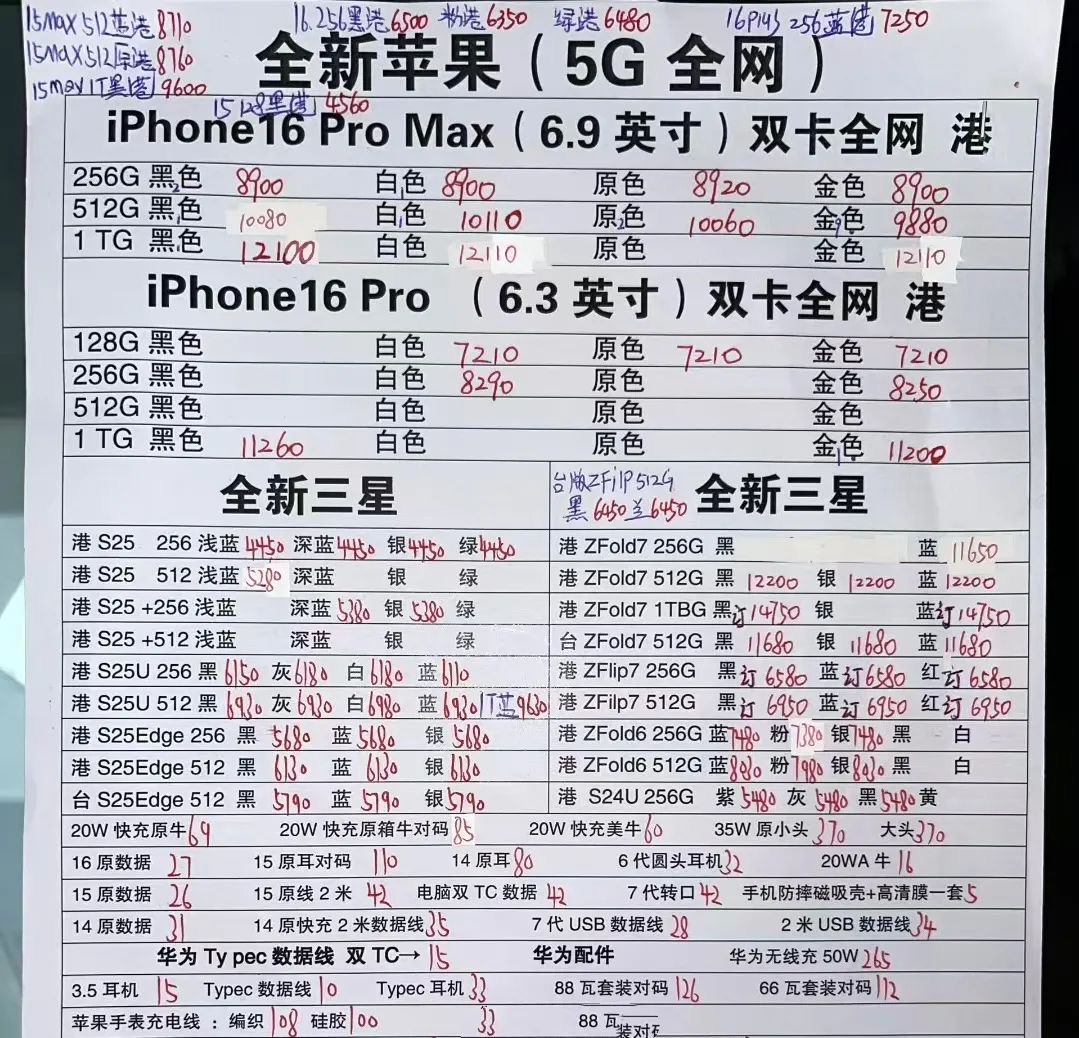 15Max 512蓝港8710 16.256黑港6500 粉港6350 绿港6480 16Plus 256蓝港7250
15Max 512原港8760
15Max 1T黑港9600
全新苹果（5G 全网）
15 128黑港4560
iPhone16 Pro Max（6.9 英寸）双卡全网 港
256G 黑色 2 8900 白色 1 8900 原色 8920 金色 8900
512G 黑色 1 10080 白色 1 10110 原色 2 10060 金色 9 9880
1 TG 黑色 1 12100 白色 12110 原色 金色 12110
iPhone16 Pro （6.3 英寸）双卡全网 港
128G 黑色 白色 7210 原色 7210 金色 7210
256G 黑色 白色 8290 原色 金色 8250
512G 黑色 白色 原色 金色
1 TG 黑色 11260 白色 原色 金色 1 11200
全新三星
港 S25 256 浅蓝 4450 深蓝 4450 银 4450 绿 4450
港 S25 512 浅蓝 5280 深蓝 银 绿
港 S25 +256 浅蓝 深蓝 5380 银 5380 绿
港 S25 +512 浅蓝 深蓝 银 绿
港 S25U 256 黑 6150 灰 6180 白 6180 蓝 6110
港 S25U 512 黑 6930 灰 6930 白 6980 蓝 6930 1T蓝9630
港 S25Edge 256 黑 5680 蓝 5680 银 5680
港 S25Edge 512 黑 6130 蓝 6130 银 6130
台 S25Edge 512 黑 5790 蓝 5790 银 5790
台版ZFilp512G
黑 6450 兰 6450
全新三星
港 ZFold7 256G 黑 蓝 11650
港 ZFold7 512G 黑 12200 银 12200 蓝 12200
港 ZFold7 1TBG 黑 订 14750 银 蓝 订 14750
台 ZFold7 512G 黑 11680 银 11680 蓝 11680
港 ZFlip7 256G 黑 订 6580 蓝 订 6580 红 订 6580
港 ZFilp7 512G 黑 订 6950 蓝 订 6950 红 订 6950
港 ZFold6 256G 蓝 7480 粉 7380 银 7480 黑 白
港 ZFold6 512G 蓝 8030 粉 7980 银 8030 黑 白
港 S24U 256G 紫 5480 灰 5480 黑 5480 黄
20W 快充原牛 69 20W 快充原箱牛对码 85 20W 快充美牛 60 35W 原小头 370 大头 370
16 原数据 27 15 原耳对码 110 14 原耳 80 6 代圆头耳机 32 20WA 牛 16
15 原数据 26 15 原线 2 米 42 电脑双 TC 数据 42 7 代转口 42 手机防摔磁吸壳+高清膜一套 5
14 原数据 31 14 原快充 2 米数据线 35 7 代 USB 数据线 28 2 米 USB 数据线 34
华为 Ty pec 数据线 双 TC→ 15 华为配件 华为无线充 50W 265
3.5 耳机 15 Typec 数据线 10 Typec 耳机 33 88 瓦套装对码 126 66 瓦套装对码 112
苹果手表充电线 ：编织 108 硅胶 100 33 88 瓦 装对码